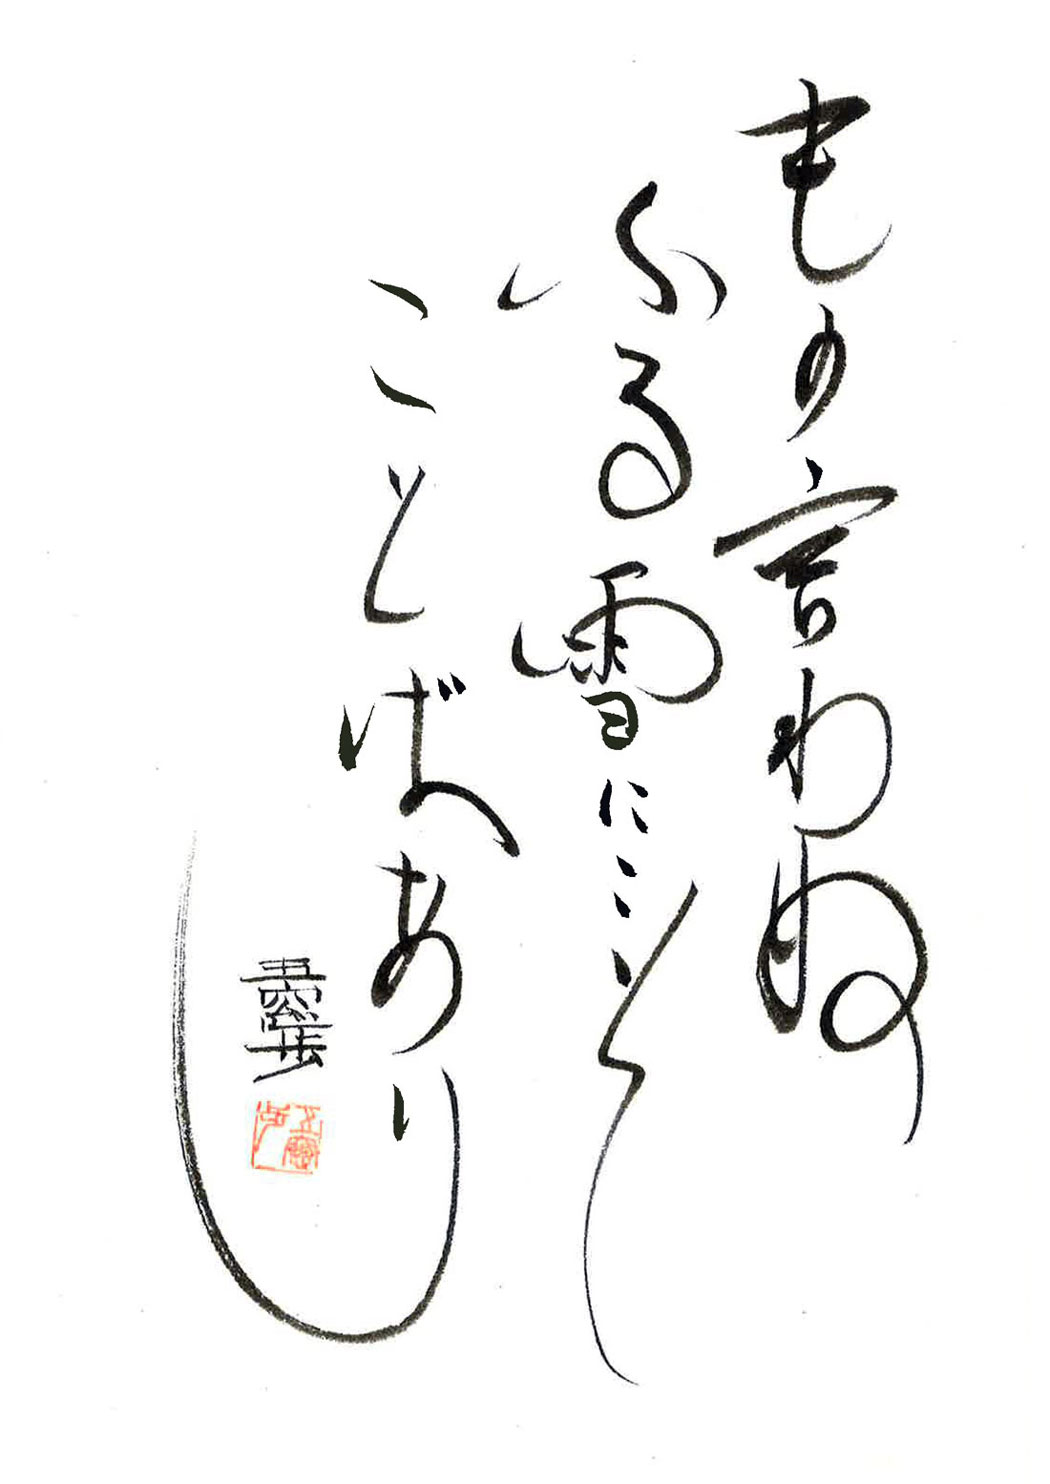 もの言わぬ
ふる雪にこそ
ことばあり